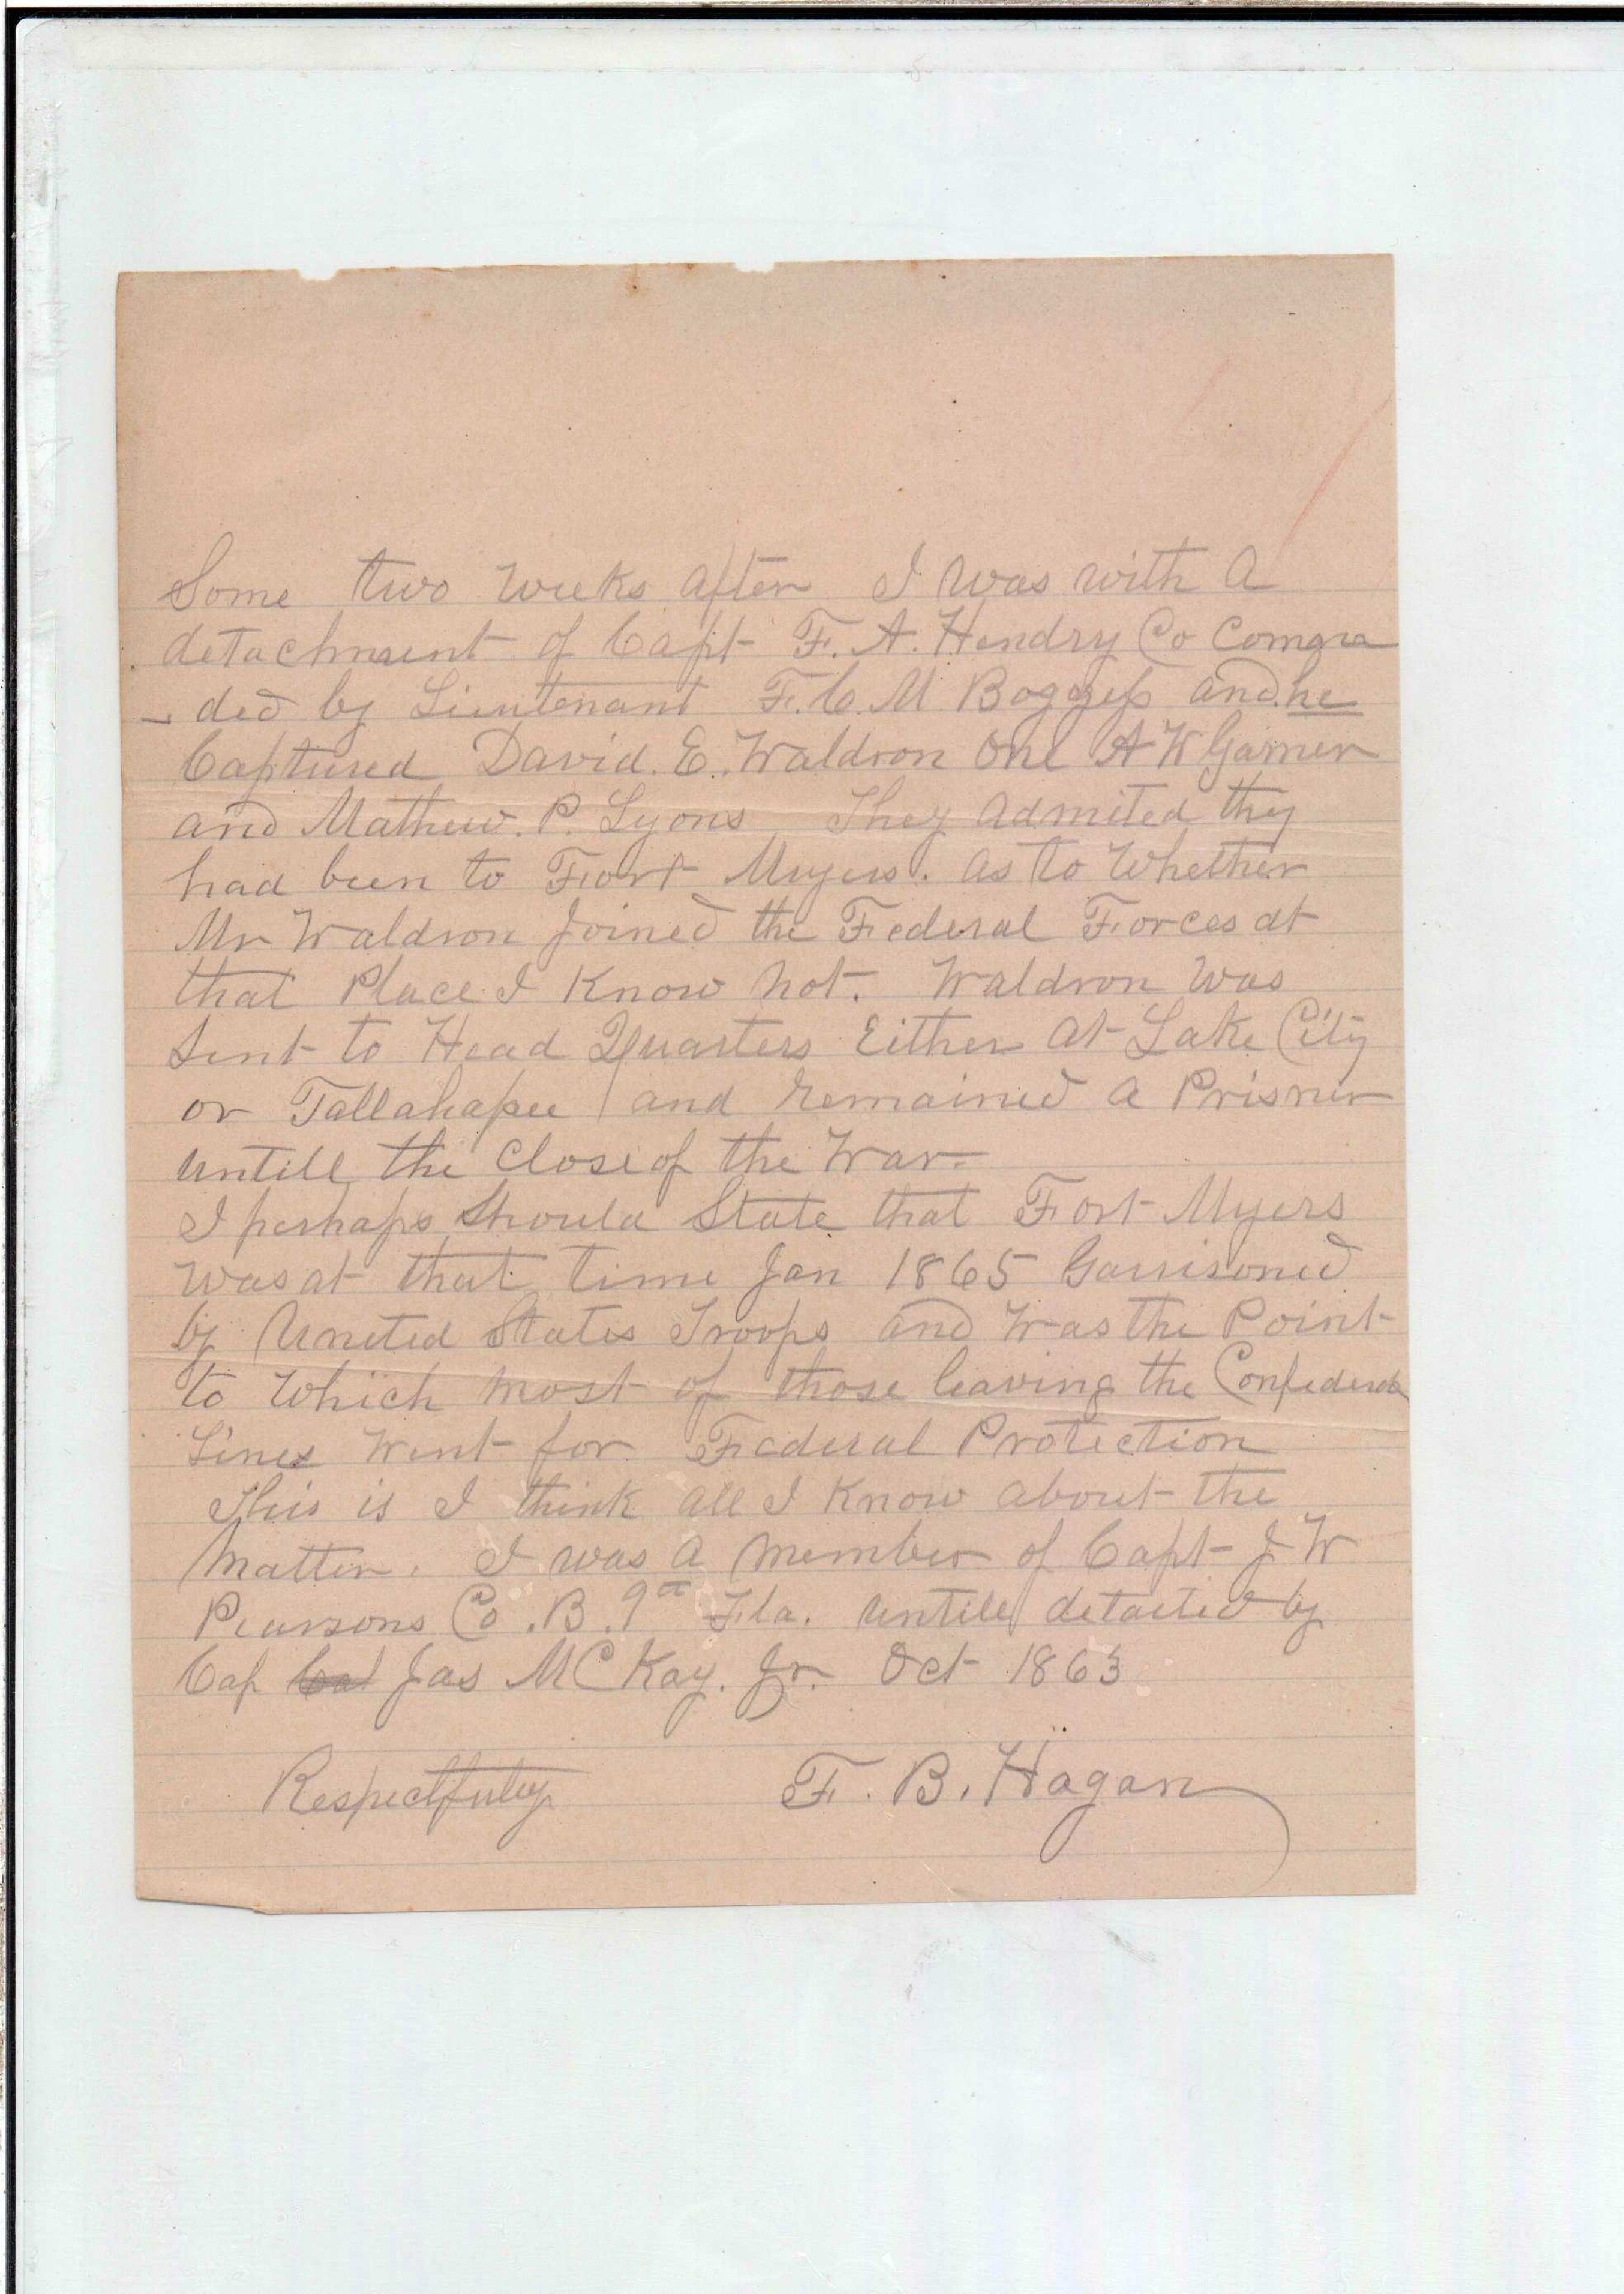 Some two weeks after I was with A
detachment of Capt F. A. Hendry Co Coman
ded by Lieutenant F. C. M Boggess and he
Captured David. E. Waldron One A K Garner
and Mathew. P. Lyons They admited they
had been to Fort Myers. as to Whether
Mr Waldron Joined the Federal Forces at
that Place I Know Not. Waldron Was
Sent to Head Quarters Either at Lake City
or Tallahassee and remained a Prisner
untill the Close of the War-
I perhaps Should State that Fort Myers
was at that time Jan 1865 Garrisoned
by United States Troops and Was the Point
to Which most of those leaving the Confederate
Lines Went for Federal Protection
This is I think all I Know about the
Matter. I was a Member of Capt J W
Pearsons Co. B. 9th Fla. untill detailed by
Cap Jas McKay. Jr. Oct 1863
Respectfuley F. B. Hagan